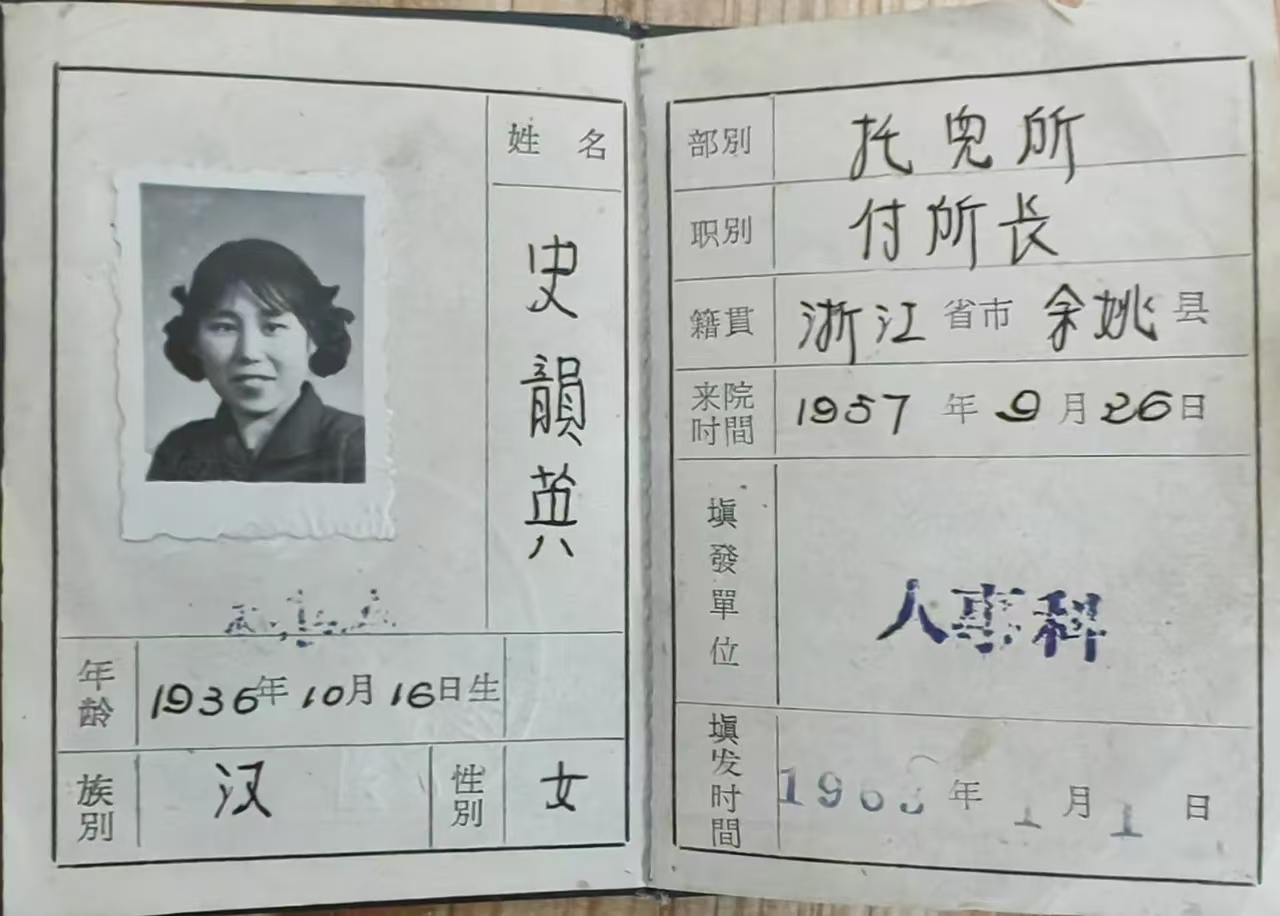 姓名
史韻英
年龄 1936年10月16日生
族別 汉 性別 女
部別 托児所
职別 付所长
籍貫 浙江省市余姚县
来院时間 1957年9月26日
填發單位 人事科
填发时間 1963年1月1日